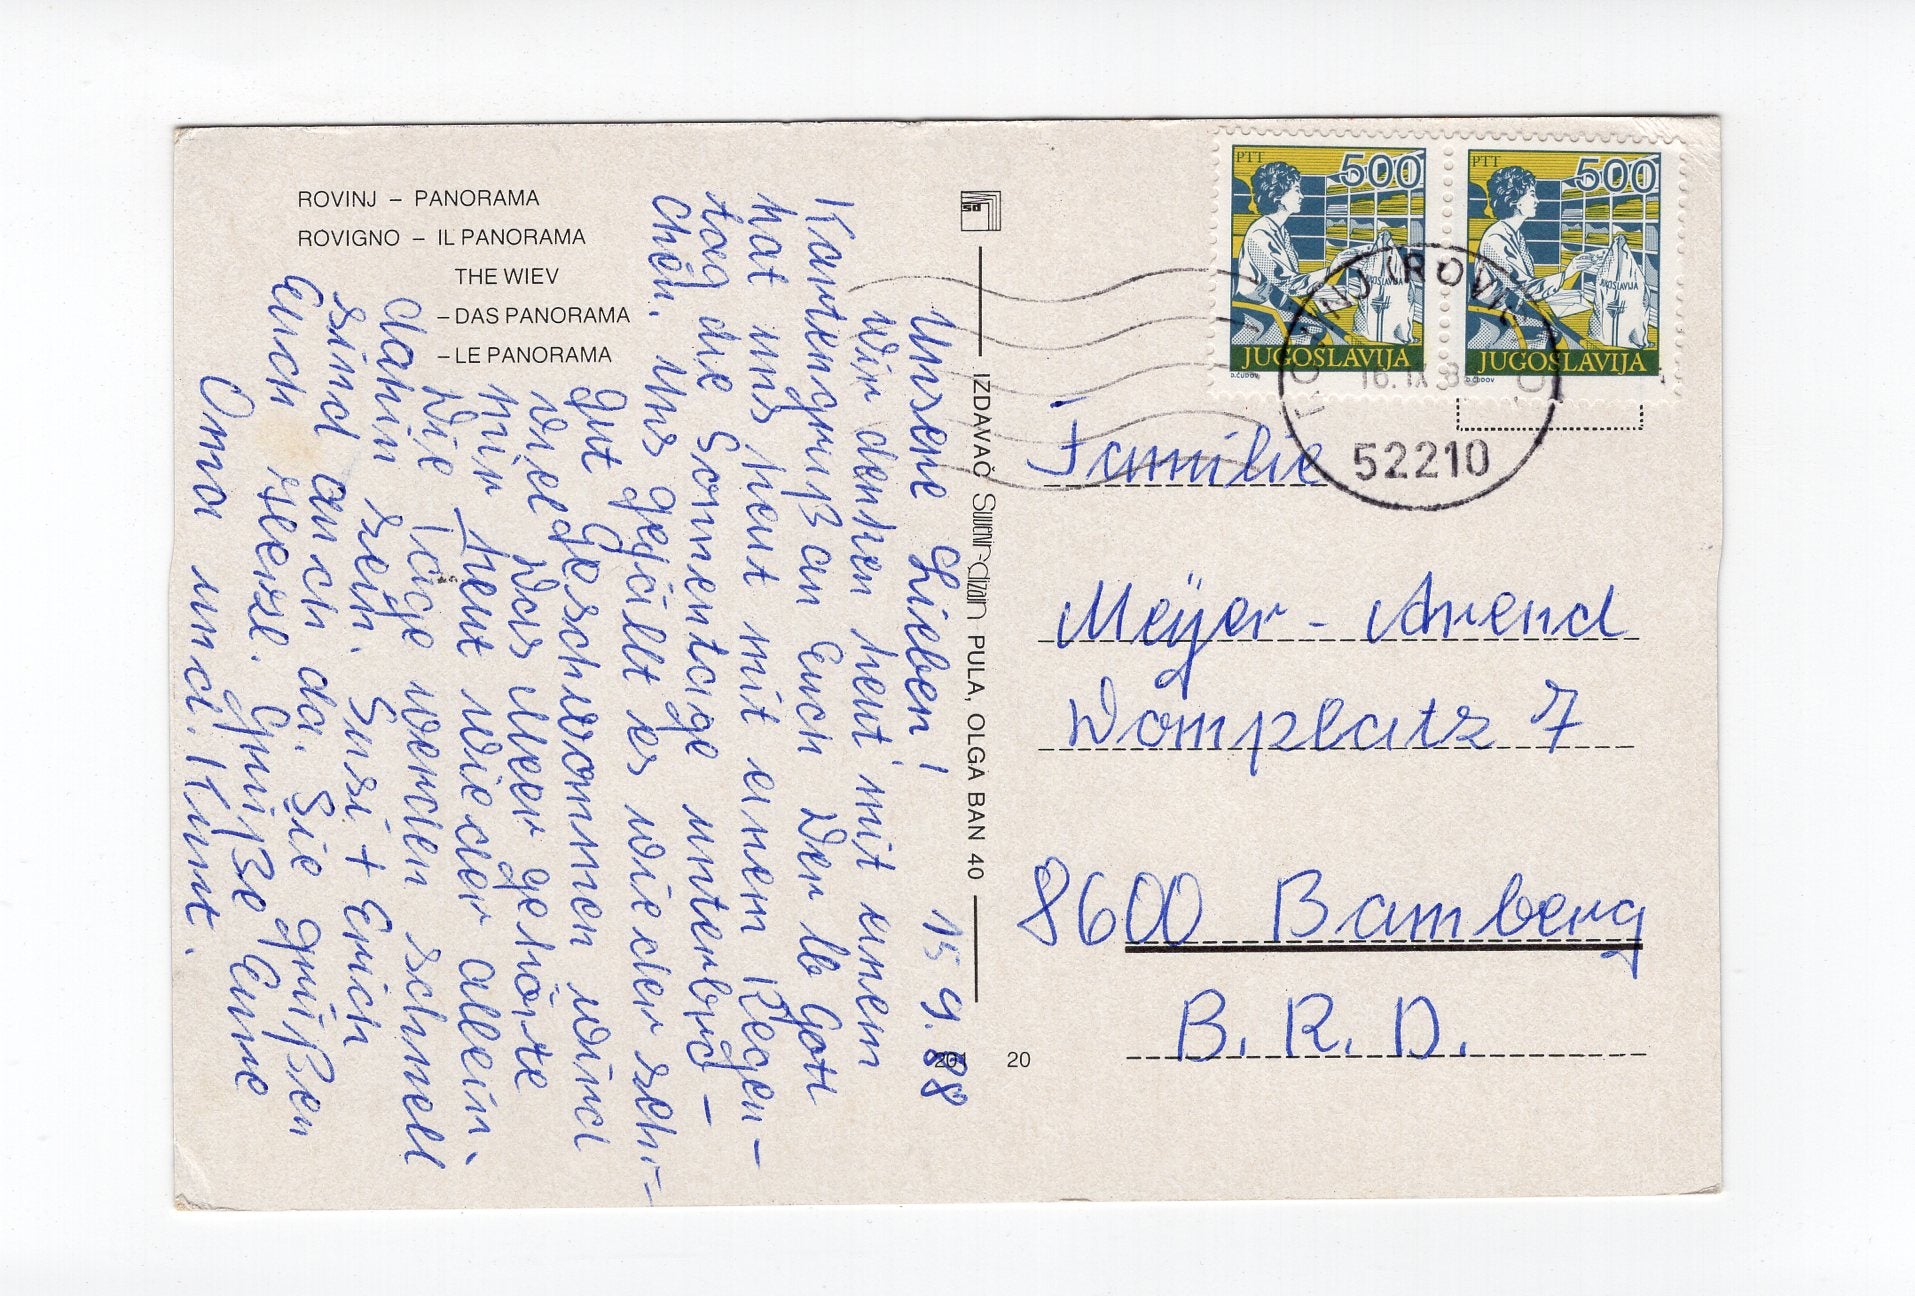 ROVINJ – PANORAMA
ROVIGNO – IL PANORAMA
THE WIEV
– DAS PANORAMA
– LE PANORAMA
15 9. 88
Unsere Lieben!
Wir denken heut mit einem
Kartengruß an Euch Der lb Gott
hat uns heut mit einem Regen-
tag die Sonnentage unterbro-
chen. Uns gefällt es wieder sehr-
gut Geschwommen wird
viel Das Meer gehörte
mir heut wieder allein.
Die Tage werden schnell
dahin sein. Susi + Erich
sind auch da. Sie grüßen
Euch sehr. Grüße Eure
Oma und Kurt.
IZDAVAČ Suvenir-dizajn PULA, OLGA BAN 40
201 20
PTT 500
JUGOSLAVIJA
JUGOSLAVIJA
D.ČUDOV
PTT 500
JUGOSLAVIJA
JUGOSLAVIJA
D.ČUDOV
ROVINJ (ROVIGNO)
16.IX.88
52210
Familie
Meÿer - Arend
Domplatz 7
8600 Bamberg
B. R. D.